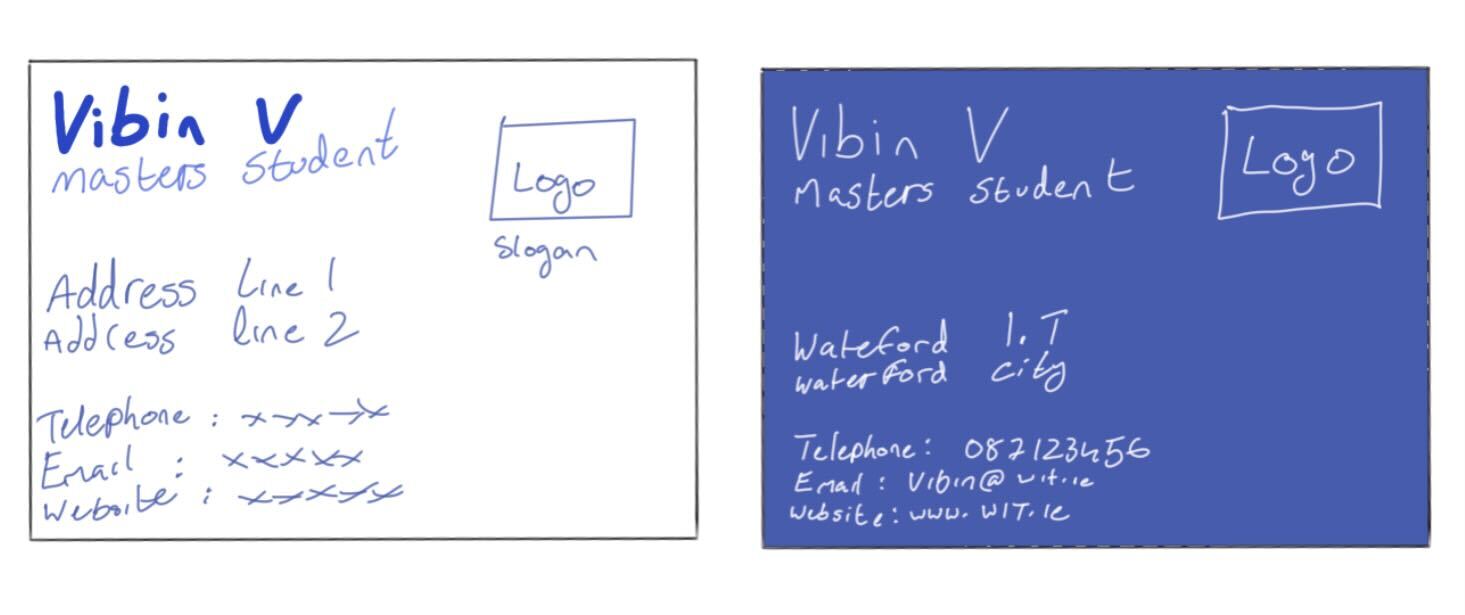 Vibin V
masters student
Logo
Slogan
Address Line 1
Address line 2
Telephone : xxxxx
Email : xxxxx
Website : xxxxx
Vibin V
Masters student
Logo
Wateford I.T
waterford city
Telephone: 087123456
Email : Vibin@wit.ie
Website: www.WIT.ie